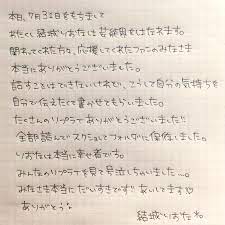 本日、7月31日をもちまして
わたくし結城りおなは芸能界をはなれます。
関わってくれた方々、応援してくれたファンのみなさま
本当にありがとうございました。
話すことはできないけれど、こうして自分の気持ちを
自分で伝えたくて書かせてもらいました。
たくさんのリプライありがとうございました!!
全部読んでスクショしてフォルダに保存しました。
りおなは本当に幸せ者です。
みんなのリプライを見て号泣しちゃいました…。
みなさま本当にだいすきです!! あいしてます♡
ありがとうな
結城りおな